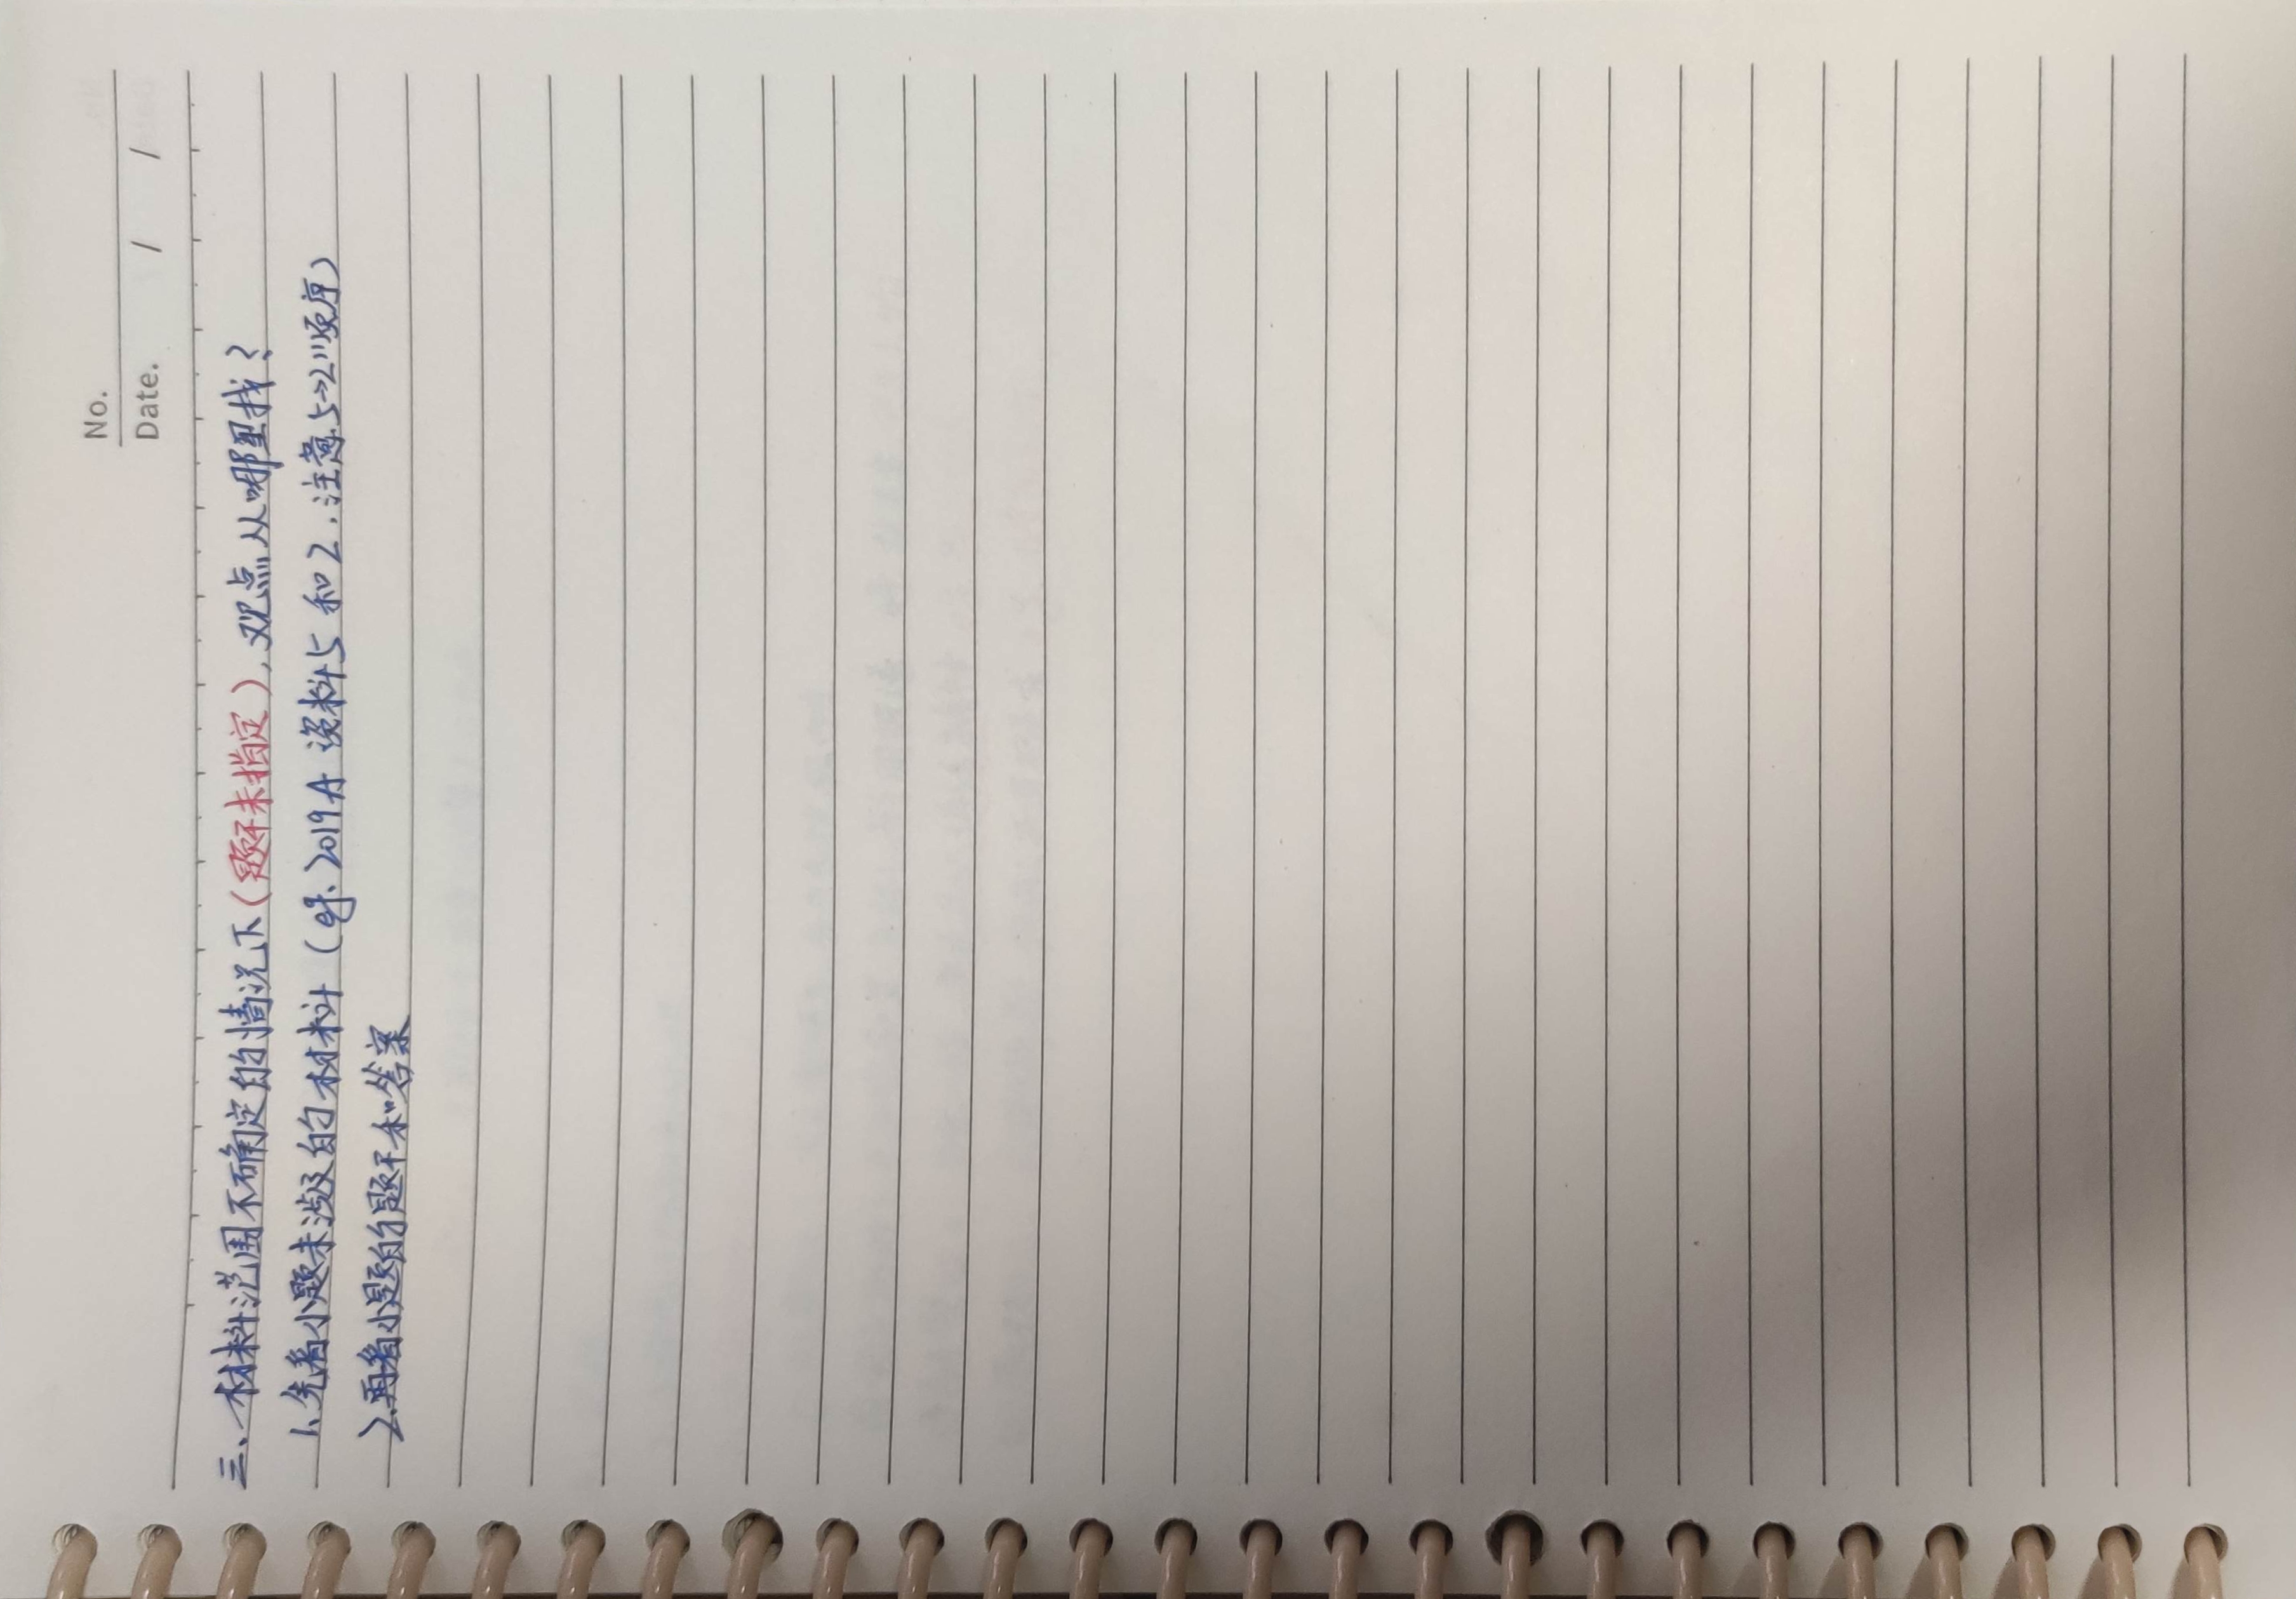 No.
Date. / /
三、材料范围不确定的情况下(题干未指定),观点从哪里找?
1、先看小题未涉及的材料(eg. 2019A 资料5 和2,注意5→2顺序)
2.再看小题的题干和答案